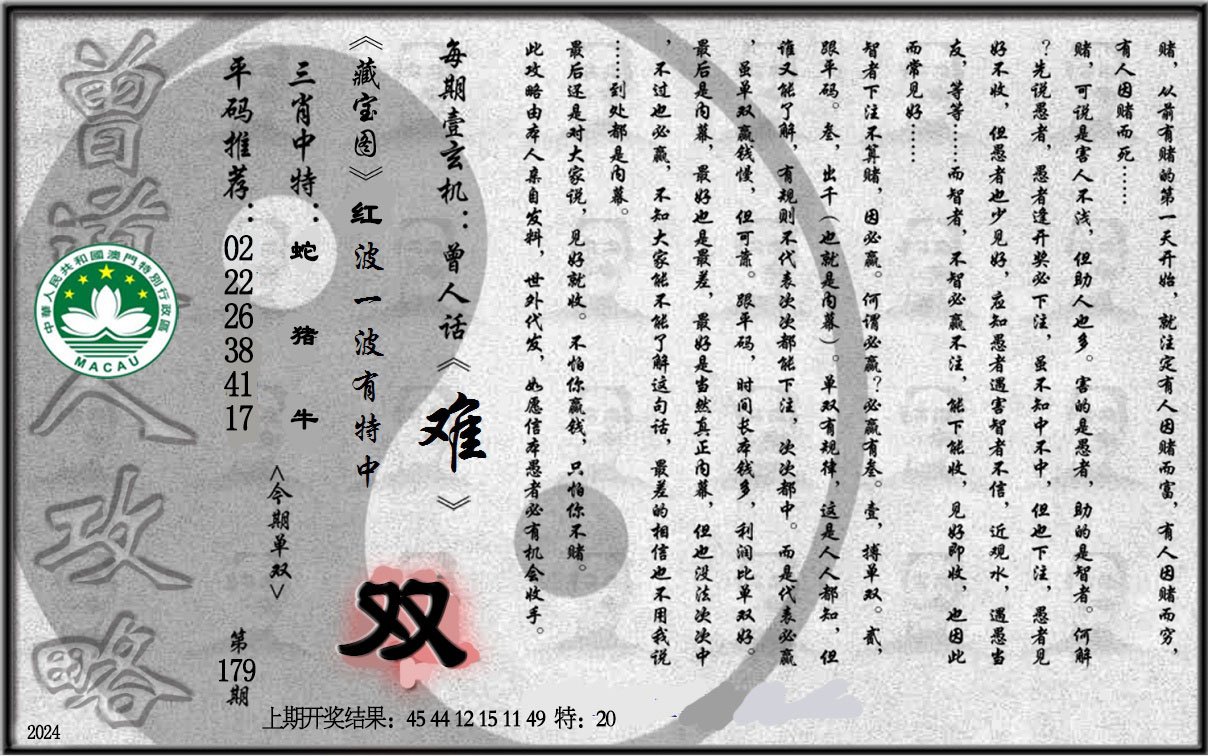 赌，从前有赌的第一天开始，就注定有人因赌而富，有人因赌而穷，
有人因赌而死……
赌，可说是害人不浅，但助人也多。害的是愚者，助的是智者。何解
？先说愚者，愚者逢开奖必下注，虽不知中不中，但也下注，愚者见
好不收，但愚者也少见好，应知愚者遇害智者不信，近观水，遇愚当
友，等等……而智者，不智必赢不注，能下能收，见好即收，也因此
而常见好……
智者下注不算赌，因必赢。何谓必赢？必赢有叁。壹，搏单双。贰，
跟平码。叁，出千（也就是内幕）。单双有规律，这是人人都知，但
谁又能了解，有规则不代表次次都能下注，次次都中。而是代表必赢
，虽单双赢钱慢，但可靠。跟平码，时间长本钱多，利润比单双好。
最后是内幕，最好也是最差，最好是当然真正内幕，但也没法次次中
，不过也必赢，不知大家能不能了解这句话，最差的相信也不用我说
……到处都是内幕。
最后还是对大家说，见好就收。不怕你赢钱，只怕你不赌。
此攻略由本人亲自发料，世外代发，如愿信本愚者必有机会收手。
每期壹玄机：曾人话《难》
《藏宝图》红波一波有特中
双
三肖中特：蛇 猪 牛
<今期单双>
平码推荐：02 22 26 38 41 17
第179期
曾道人攻略
中華人民共和國澳門特別行政區
MACAU
上期开奖结果：45 44 12 15 11 49 特：20
2024